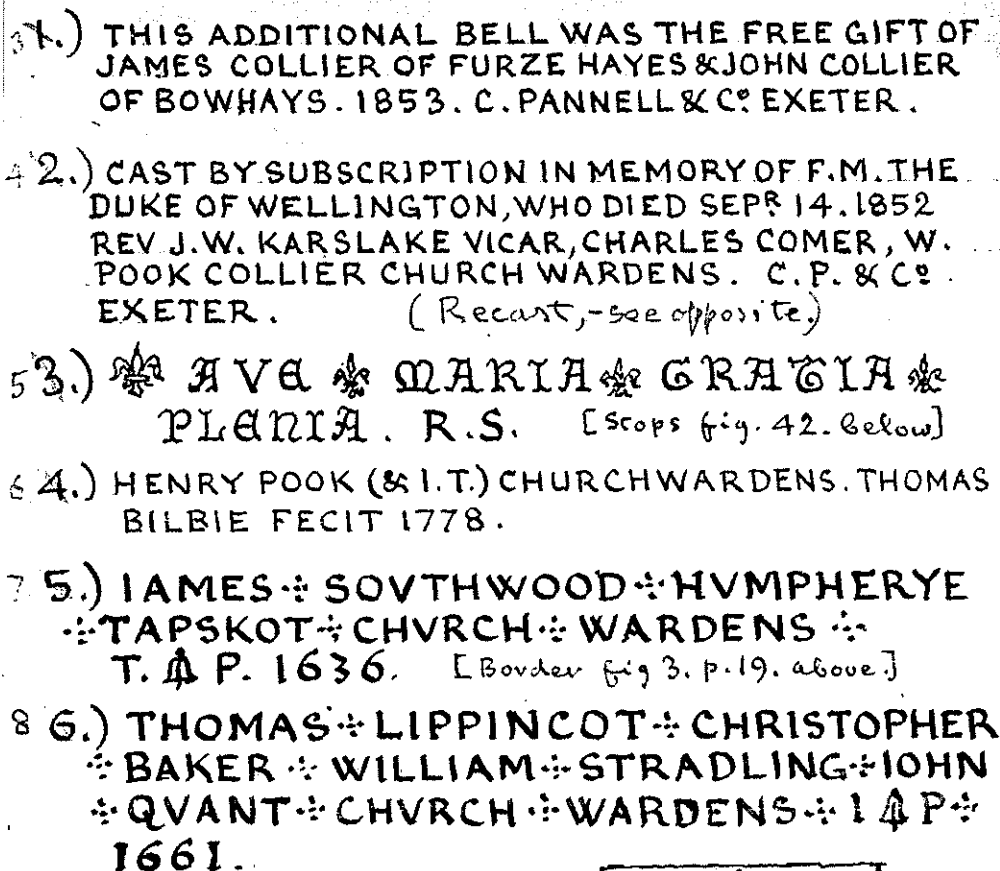 3 1.) THIS ADDITIONAL BELL WAS THE FREE GIFT OF
JAMES COLLIER OF FURZE HAYES & JOHN COLLIER
OF BOWHAYS. 1853. C. PANNELL & Cº EXETER.
4 2.) CAST BY SUBSCRIPTION IN MEMORY OF F.M. THE
DUKE OF WELLINGTON, WHO DIED SEPR 14. 1852
REV J.W. KARSLAKE VICAR, CHARLES COMER, W.
POOK COLLIER CHURCH WARDENS. C.P. & Cº.
EXETER. (Recast,-see opposite.)
5 3.) ⚜ AVE ⚜ MARIA ⚜ GRATIA ⚜
PLENIA. R.S. [Stops fig. 42. below]
6 4.) HENRY POOK (& I.T.) CHURCHWARDENS. THOMAS
BILBIE FECIT 1778.
7 5.) IAMES ⁜ SOVTHWOOD ⁜ HVMPHERYE
⁜ TAPSKOT ⁜ CHVRCH ⁜ WARDENS ⁜
T. 🔔 P. 1636. [Border fig 3. p.19. above.]
8 6.) THOMAS ⁜ LIPPINCOT ⁜ CHRISTOPHER
⁜ BAKER ⁜ WILLIAM ⁜ STRADLING ⁜ IOHN
⁜ QVANT ⁜ CHVRCH ⁜ WARDENS ⁜ I 🔔 P ⁜
1661.